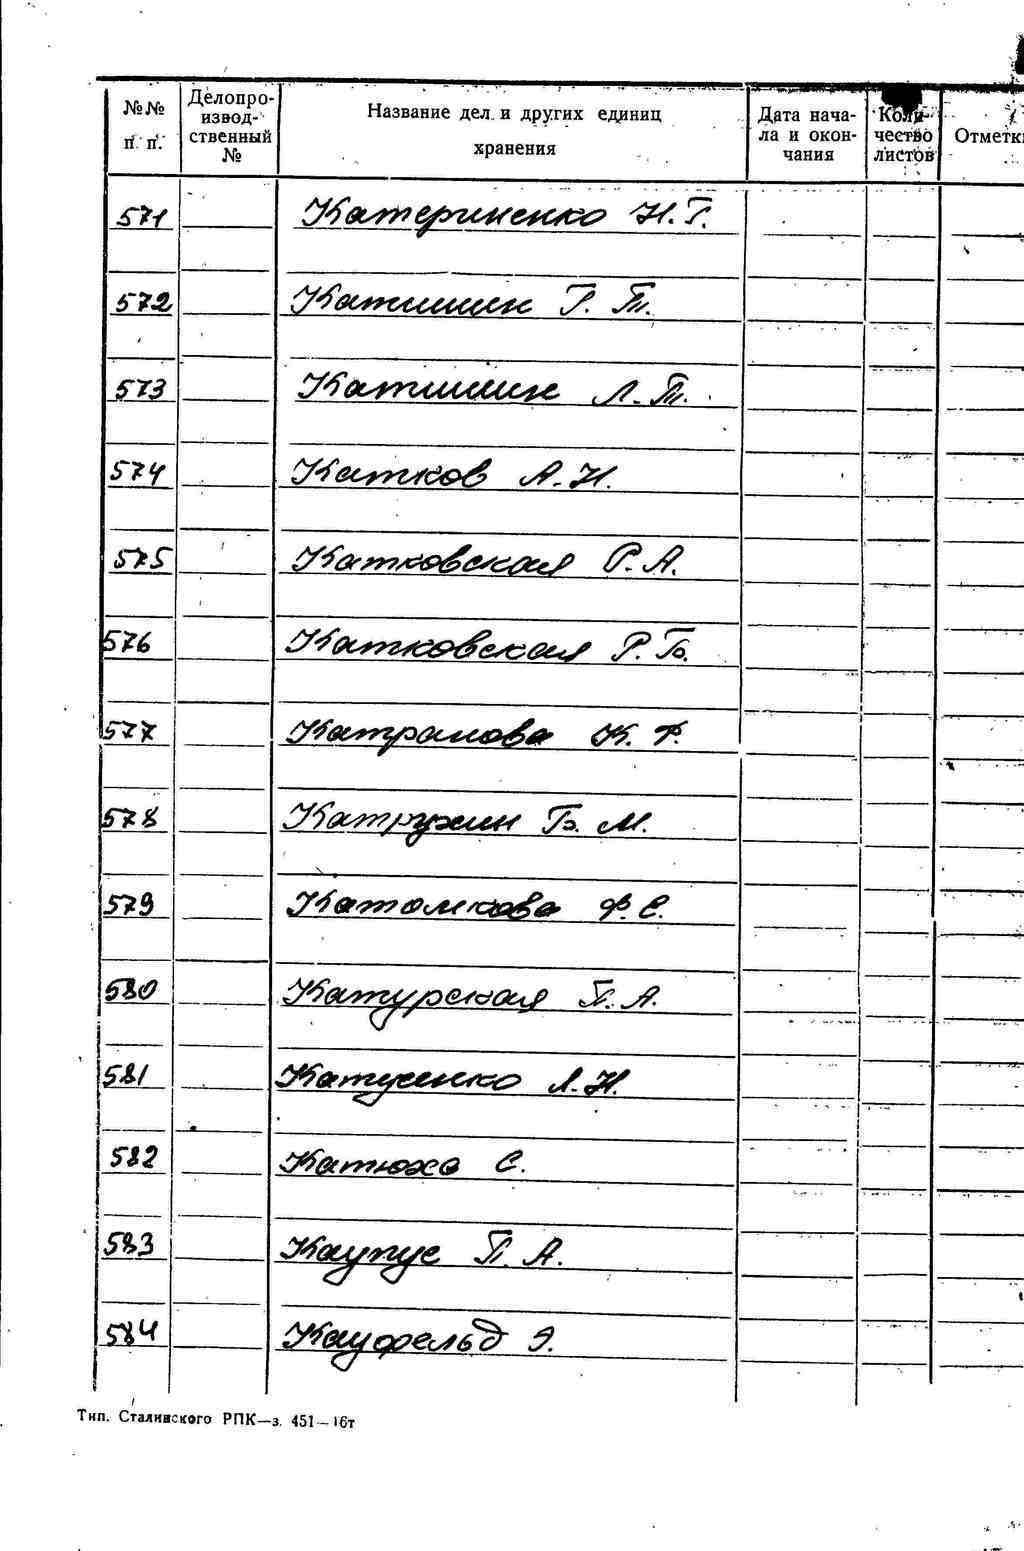 №№ п. п.
Делопро-
извод-
ственный
№
Название дел и других единиц
хранения
Дата нача-
ла и окон-
чания
Коли-
чество
листов
Отметки
571 Катериненко Н. Г.
572 Катишин Г. Т.
573 Катишин Л. Т.
574 Катков А. Н.
575 Катковская Р. А.
576 Катковская Р. Б.
577 Катранова К. Ф.
578 Катрухин Б. М.
579 Катомкова Ф. Е.
580 Катурская П. А.
581 Катусенко Л. Н.
582 Катюха С.
583 Каупус П. А.
584 Кауфельд Э.
Тип. Сталинского РПК—з. 451—16т